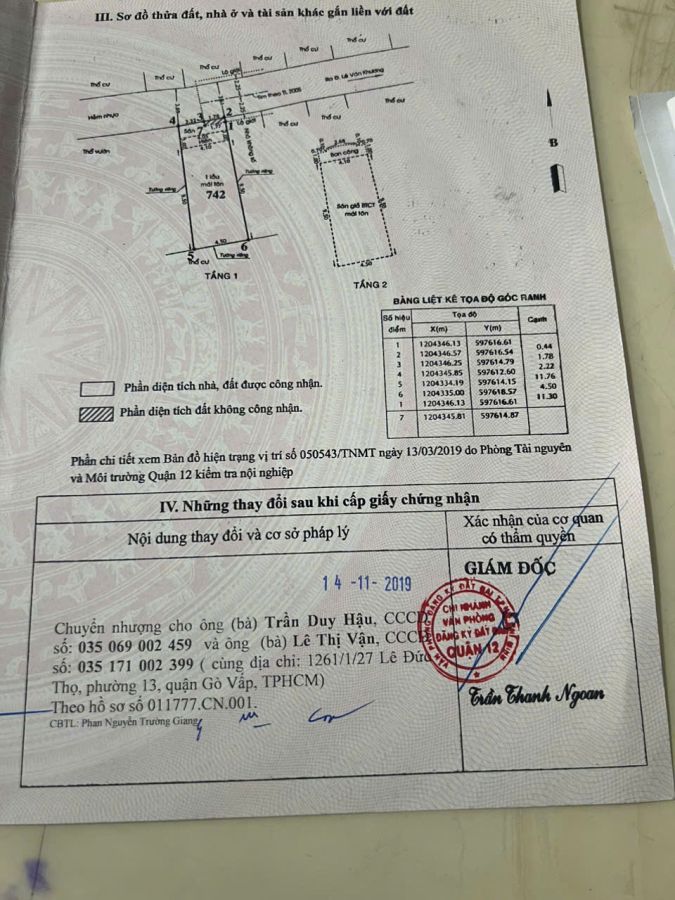 III. Sơ đồ thửa đất, nhà ở và tài sản khác gắn liền với đất
Thổ cư
Thổ cư
Thổ cư
Thổ cư
Thổ cư
Thổ cư
Thổ cư
Lộ giới
Ra Đ. Lê Văn Khương
Hẻm nhựa
Lộ giới
Thổ vườn
Sân
Tường riêng
Tường riêng
1 lầu
mái tôn
742
4.50
Tường riêng
Thổ cư
TẦNG 1
B
Ban công
4.10
Sàn giả BTCT
mái tôn
9.50
4.50
TẦNG 2
BẢNG LIỆT KÊ TỌA ĐỘ GÓC RANH
Số hiệu điểm Tọa độ Cạnh
X(m) Y(m)
1 1204346.13 597616.61
0.44
2 1204346.57 597616.54
1.78
3 1204346.25 597614.79
2.22
4 1204345.85 597612.60
11.76
5 1204334.19 597614.15
4.50
6 1204335.00 597618.57
11.30
1 1204346.13 597616.61
7 1204345.81 597614.87
Phần diện tích nhà, đất được công nhận.
Phần diện tích đất không công nhận.
Phần chi tiết xem Bản đồ hiện trạng vị trí số 050543/TNMT ngày 13/03/2019 do Phòng Tài nguyên
và Môi trường Quận 12 kiểm tra nội nghiệp
IV. Những thay đổi sau khi cấp giấy chứng nhận
Nội dung thay đổi và cơ sở pháp lý
Xác nhận của cơ quan
có thẩm quyền
14-11-2019
GIÁM ĐỐC
Chuyển nhượng cho ông (bà) Trần Duy Hậu, CCCD
số: 035 069 002 459 và ông (bà) Lê Thị Vận, CCCD
số: 035 171 002 399 ( cùng địa chỉ: 1261/1/27 Lê Đức
Thọ, phường 13, quận Gò Vấp, TPHCM)
Theo hồ sơ số 011777.CN.001.
CBTL: Phan Nguyễn Trường Giang
CHI NHÁNH
VĂN PHÒNG
ĐĂNG KÝ ĐẤT ĐAI
QUẬN 12
Trần Thanh Ngoan